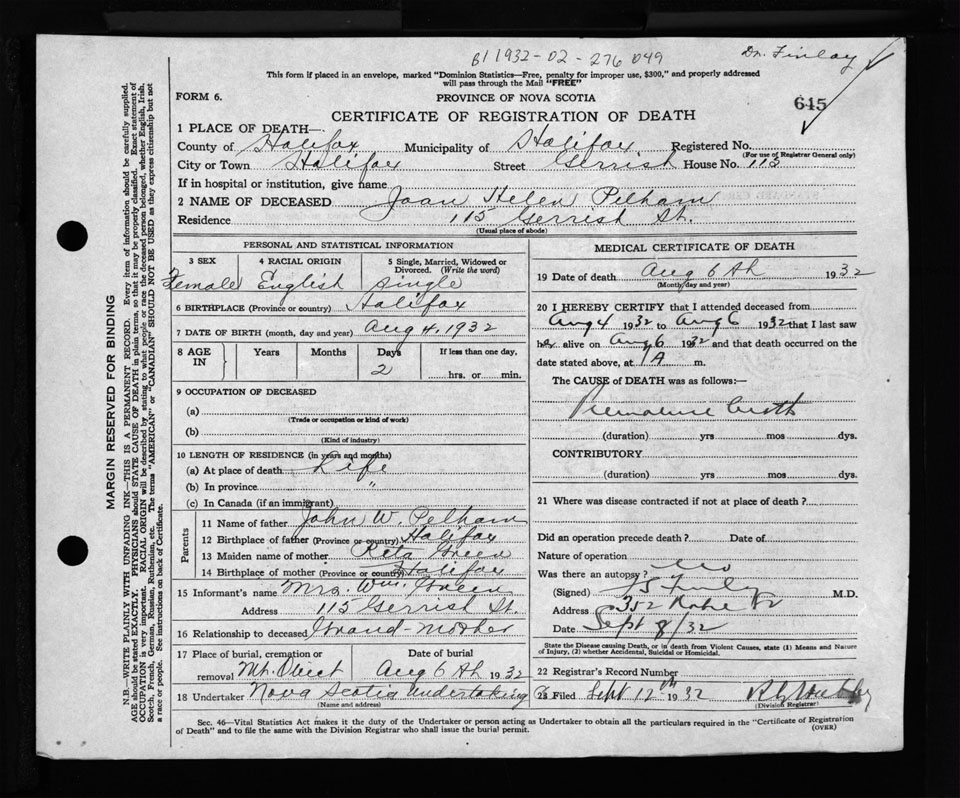 B1 1932-02-276 049
Dr. Finlay
This form if placed in an envelope, marked "Dominion Statistics—Free, penalty for improper use, $300," and properly addressed
will pass through the Mail "FREE"
FORM 6.
PROVINCE OF NOVA SCOTIA
645
CERTIFICATE OF REGISTRATION OF DEATH
1 PLACE OF DEATH—
County of Halifax Municipality of Halifax Registered No.
(For use of Registrar General only)
City or Town Halifax Street Gerrish House No. 115
If in hospital or institution, give name
2 NAME OF DECEASED Joan Helen Pelham
Residence 115 Gerrish St.
(Usual place of abode)
PERSONAL AND STATISTICAL INFORMATION
3 SEX 4 RACIAL ORIGIN 5 Single, Married, Widowed or
Divorced. (Write the word)
Female English Single
6 BIRTHPLACE (Province or country) Halifax
7 DATE OF BIRTH (month, day and year) Aug 4, 1932
8 AGE IN Years Months Days If less than one day,
2 hrs. or min.
9 OCCUPATION OF DECEASED
(a)
(Trade or occupation or kind of work)
(b)
(Kind of industry)
10 LENGTH OF RESIDENCE (in years and months)
(a) At place of death Life
(b) In province "
(c) In Canada (if an immigrant)
Parents
11 Name of father John W. Pelham
12 Birthplace of father (Province or country) Halifax
13 Maiden name of mother Rita Green
14 Birthplace of mother (Province or country) Halifax
15 Informant's name Mrs. Wm. Green
Address 115 Gerrish St.
16 Relationship to deceased Grand-mother
17 Place of burial, cremation or Date of burial
removal Mt. Olivet Aug 6th 1932
18 Undertaker Nova Scotia Undertaking
(Name and address)
MEDICAL CERTIFICATE OF DEATH
19 Date of death Aug 6th 1932
(Month, day and year)
20 I HEREBY CERTIFY that I attended deceased from
Aug 4 1932 to Aug 6 1932 that I last saw
her alive on Aug 6 1932 and that death occurred on the
date stated above, at 1 A m.
The CAUSE of DEATH was as follows:—
Premature birth
(duration) yrs mos dys.
CONTRIBUTORY
(duration) yrs mos dys.
21 Where was disease contracted if not at place of death?
Did an operation precede death? Date of
Nature of operation
Was there an autopsy? No
(Signed) M.D.
Address 352
Date Sept 8/32
State the Disease causing Death, or in death from Violent Causes, state (1) Means and Nature
of Injury, (2) whether Accidental, Suicidal or Homicidal.
22 Registrar's Record Number
23 Filed Sept 12th 1932
(Division Registrar)
Sec. 46—Vital Statistics Act makes it the duty of the Undertaker or person acting as Undertaker to obtain all the particulars required in the "Certificate of Registration
of Death" and to file the same with the Division Registrar who shall issue the burial permit.
(OVER)
MARGIN RESERVED FOR BINDING
N.B.—WRITE PLAINLY WITH UNFADING INK—THIS IS A PERMANENT RECORD. Every item of information should be carefully supplied.
AGE should be stated EXACTLY. PHYSICIANS should STATE CAUSE OF DEATH in plain terms, so that it may be properly classified. Exact statement of
OCCUPATION is very important. RACIAL ORIGIN will be described by stating to what people or race the deceased person belonged, whether English, Irish,
Scotch, French, German, Russian, Ruthenian, etc. The terms "AMERICAN" or "CANADIAN" SHOULD NOT BE USED as they express citizenship but not
a race or people. See instructions on back of Certificate.